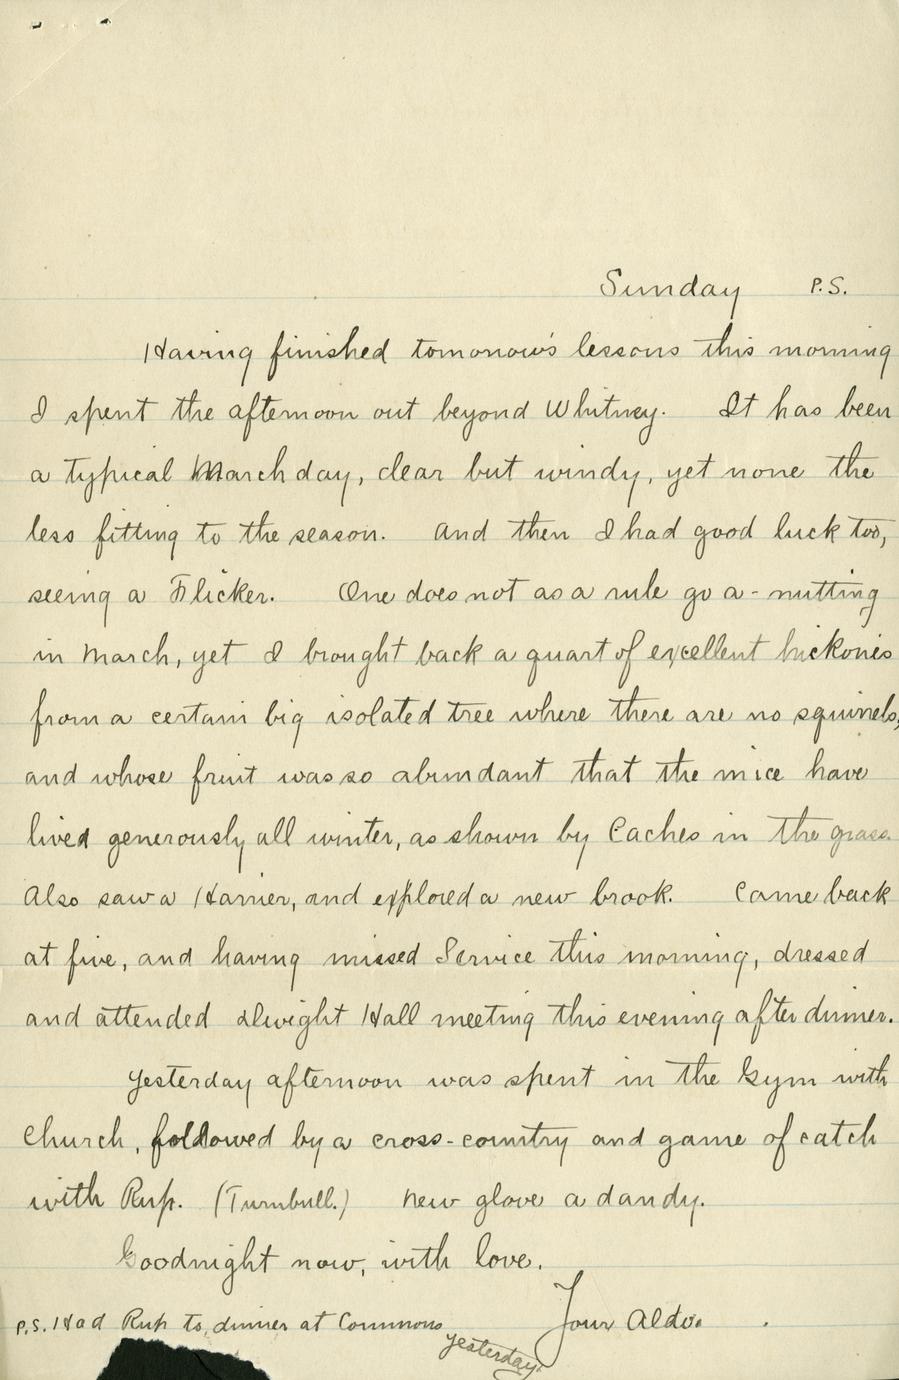 Sunday P.S.
Having finished tomorrow's lessons this morning
I spent the afternoon out beyond Whitney. It has been
a typical March day, clear but windy, yet none the
less fitting to the season. And then I had good luck too,
seeing a Flicker. One does not as a rule go a-nutting
in March, yet I brought back a quart of excellent hickories
from a certain big isolated tree where there are no squirrels,
and whose fruit was so abundant that the mice have
lived generously all winter, as shown by Caches in the grass.
Also saw a Harrier, and explored a new brook. Came back
at five, and having missed Service this morning, dressed
and attended Dwight Hall meeting this evening after dinner.
Yesterday afternoon was spent in the Gym with
Church, followed by a cross-country and game of catch
with Rup. (Turnbull.) New glove a dandy.
Goodnight now, with love.
Your Aldo.
P.S. Had Rup to dinner at Commons
yesterday.